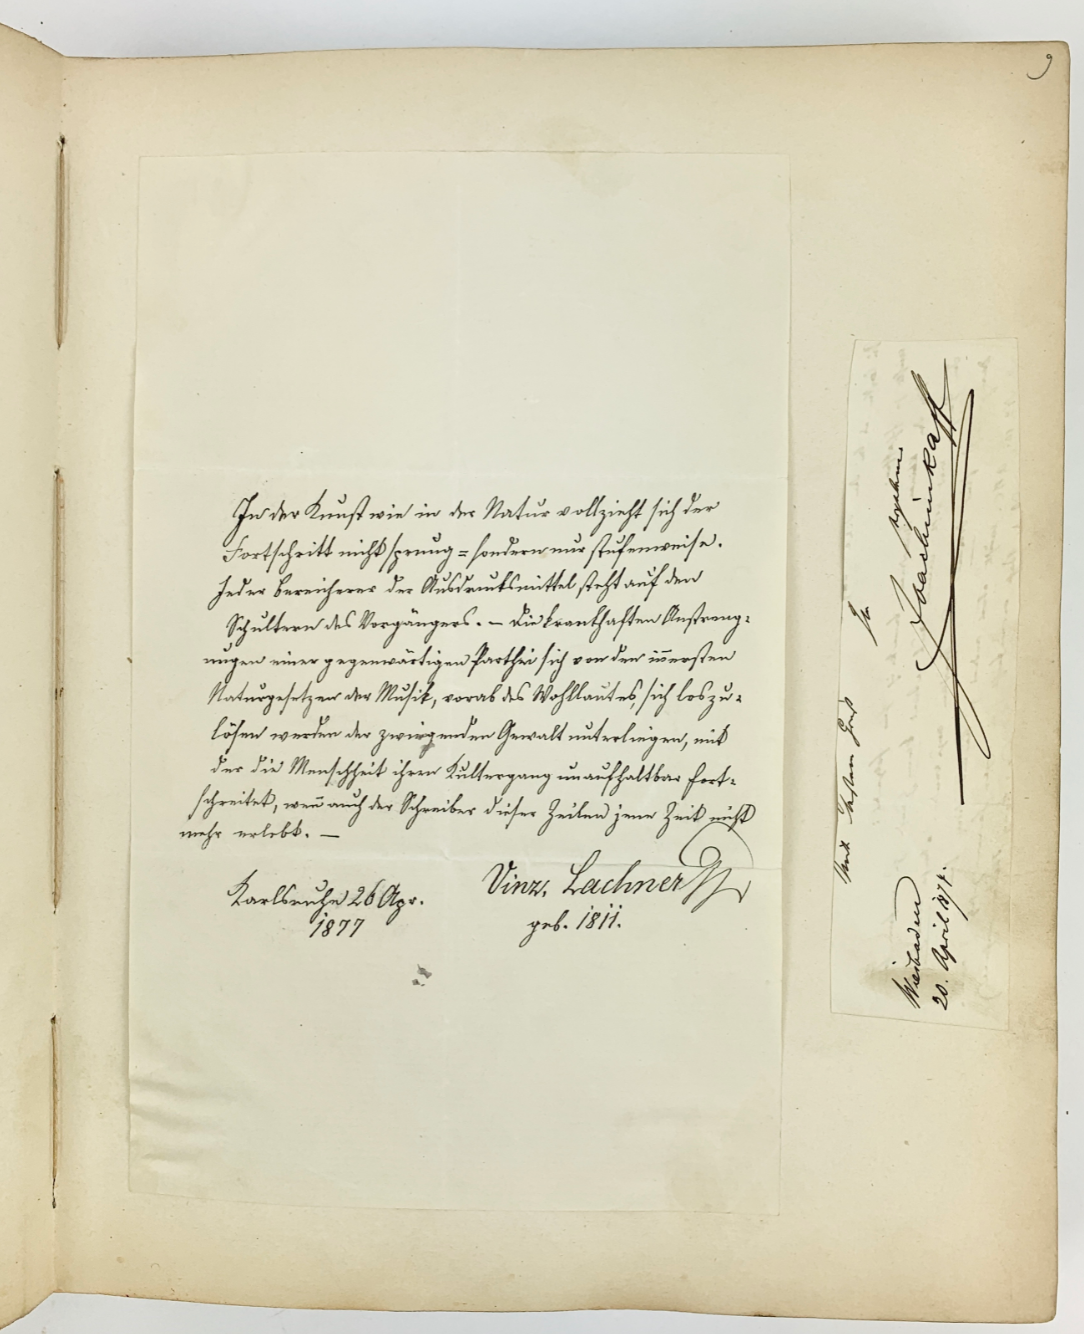 In der Kunst wie in der Natur vollzieht sich der
Fortschritt nicht sprung= sondern nur stufenweise.
Jeder Bereicherer der Ausdrucksmittel steht auf den
Schultern des Vorgängers. — Die krankhaften Anstreng=
ungen einer gegenwärtigen Parthei sich von den innersten
Naturgesetzen der Musik, vorab des Wohllautes, sich loszu=
lösen werden der zwingenden Gewalt unterliegen, mit
der die Menschheit ihren Kulturgang unaufhaltbar fort=
schreitet, wenn auch der Schreiber dieser Zeilen jene Zeit nicht
mehr erlebt. —
Karlsruhe 26 Apr.
1877
Vinz. Lachner
geb. 1811.
Ihr
ergebener
Joachim Raff
Wiesbaden
20. April 1874.
9